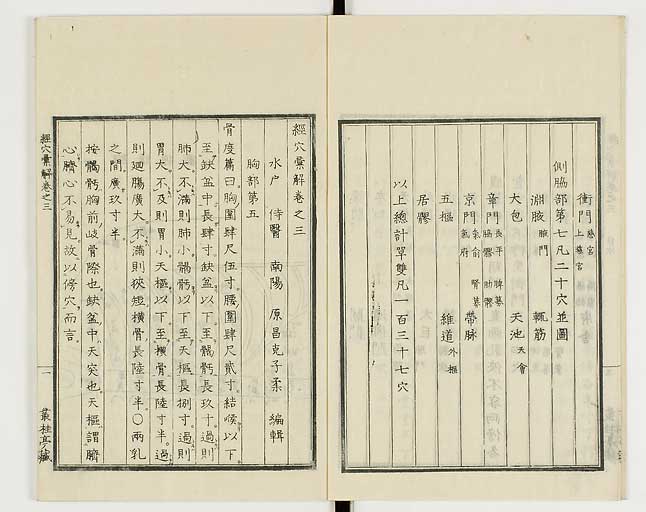 衝門 慈宮 上慈宮
側脇部第七凡二十穴並圖
淵腋 腋門 輒筋
大包 天池 天會
章門 長平 脇髎 脾募 肋髎
京門 氣俞 氣府 腎募 帶脈
五樞 維道 外樞
居髎
以上總計單雙凡一百三十七穴
經穴彙解卷之三
水戶 侍醫 南陽 原昌克子柔 編輯
胸部第五
骨度篇曰胸圍肆尺伍寸腰圍肆尺貳寸結喉以下
至缺盆中長肆寸缺盆以下至𩩲骬長玖寸過則
肺大不滿則肺小𩩲骬以下至天樞長捌寸過則
胃大不及則胃小天樞以下至橫骨長陸寸半過
則廻腸廣大不滿則狹短橫骨長陸寸半〇兩乳
之間廣玖寸半
按𩩲骬胸前岐骨際也缺盆中天突也天樞謂臍
心臍心不易見故以傍穴而言
經穴彙解卷之三
一
叢桂亭藏